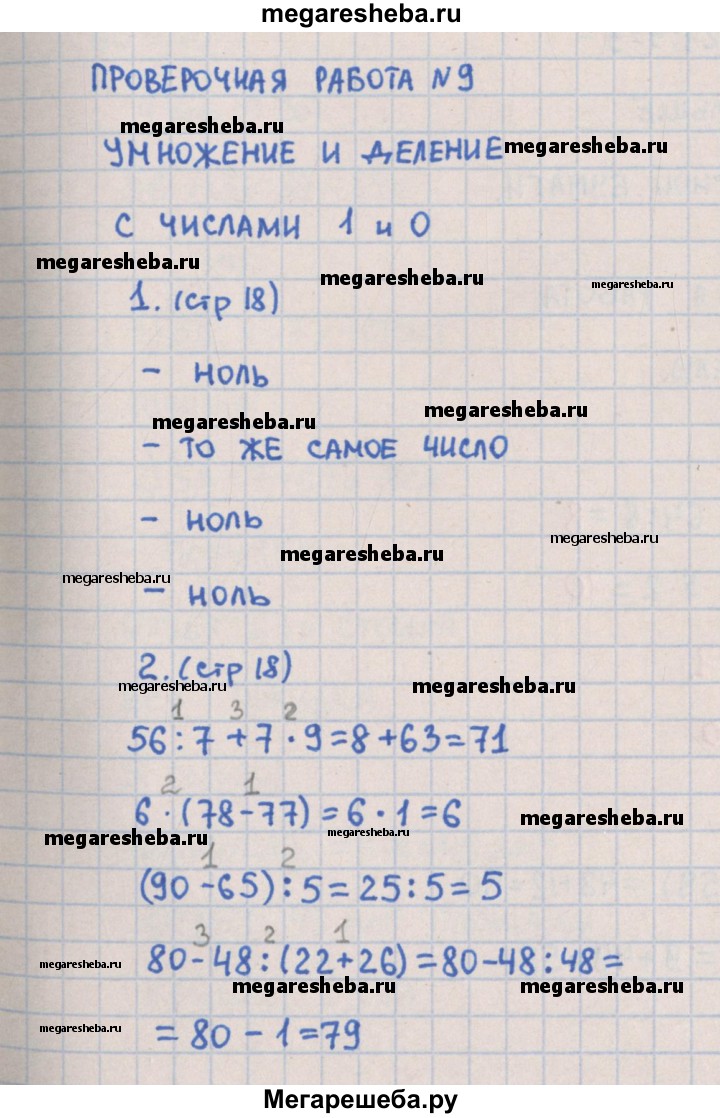 megaresheba.ru
ПРОВЕРОЧНАЯ РАБОТА N 9
megaresheba.ru
УМНОЖЕНИЕ И ДЕЛЕНИЕ megaresheba.ru
С ЧИСЛАМИ 1 и 0
megaresheba.ru
megaresheba.ru
megaresheba.ru
1. (стр 18)
- НОЛЬ
megaresheba.ru
megaresheba.ru
- ТО ЖЕ САМОЕ ЧИСЛО
- НОЛЬ
megaresheba.ru
megaresheba.ru
megaresheba.ru
- НОЛЬ
2. (стр 18)
megaresheba.ru
megaresheba.ru
1 3 2
56 : 7 + 7 · 9 = 8 + 63 = 71
2 1
6 · (78 - 77) = 6 · 1 = 6
megaresheba.ru
megaresheba.ru
megaresheba.ru
1 2
(90 - 65) : 5 = 25 : 5 = 5
3 2 1
80 - 48 : (22 + 26) = 80 - 48 : 48 =
megaresheba.ru
megaresheba.ru
megaresheba.ru
megaresheba.ru
= 80 - 1 = 79
Мегарешеба.ру